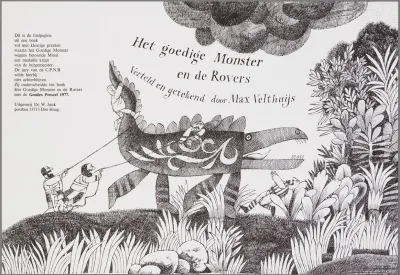 Dit is de titelpagina
uit een boek
vol met kleurige prenten
waarin het Goedige Monster
wegens betoonde Moed
een medaille krijgt
van de burgemeester.
De jury van de C.P.N.B.
wilde hierbij
niet achterblijven.
Zij onderscheidde het boek
Het Goedige Monster en de Rovers
met de Gouden Penseel 1977.
Uitgeverij Dr. W. Junk
postbus 13713 Den Haag.
Het goedige Monster
en de Rovers
Verteld en getekend door Max Velthuijs